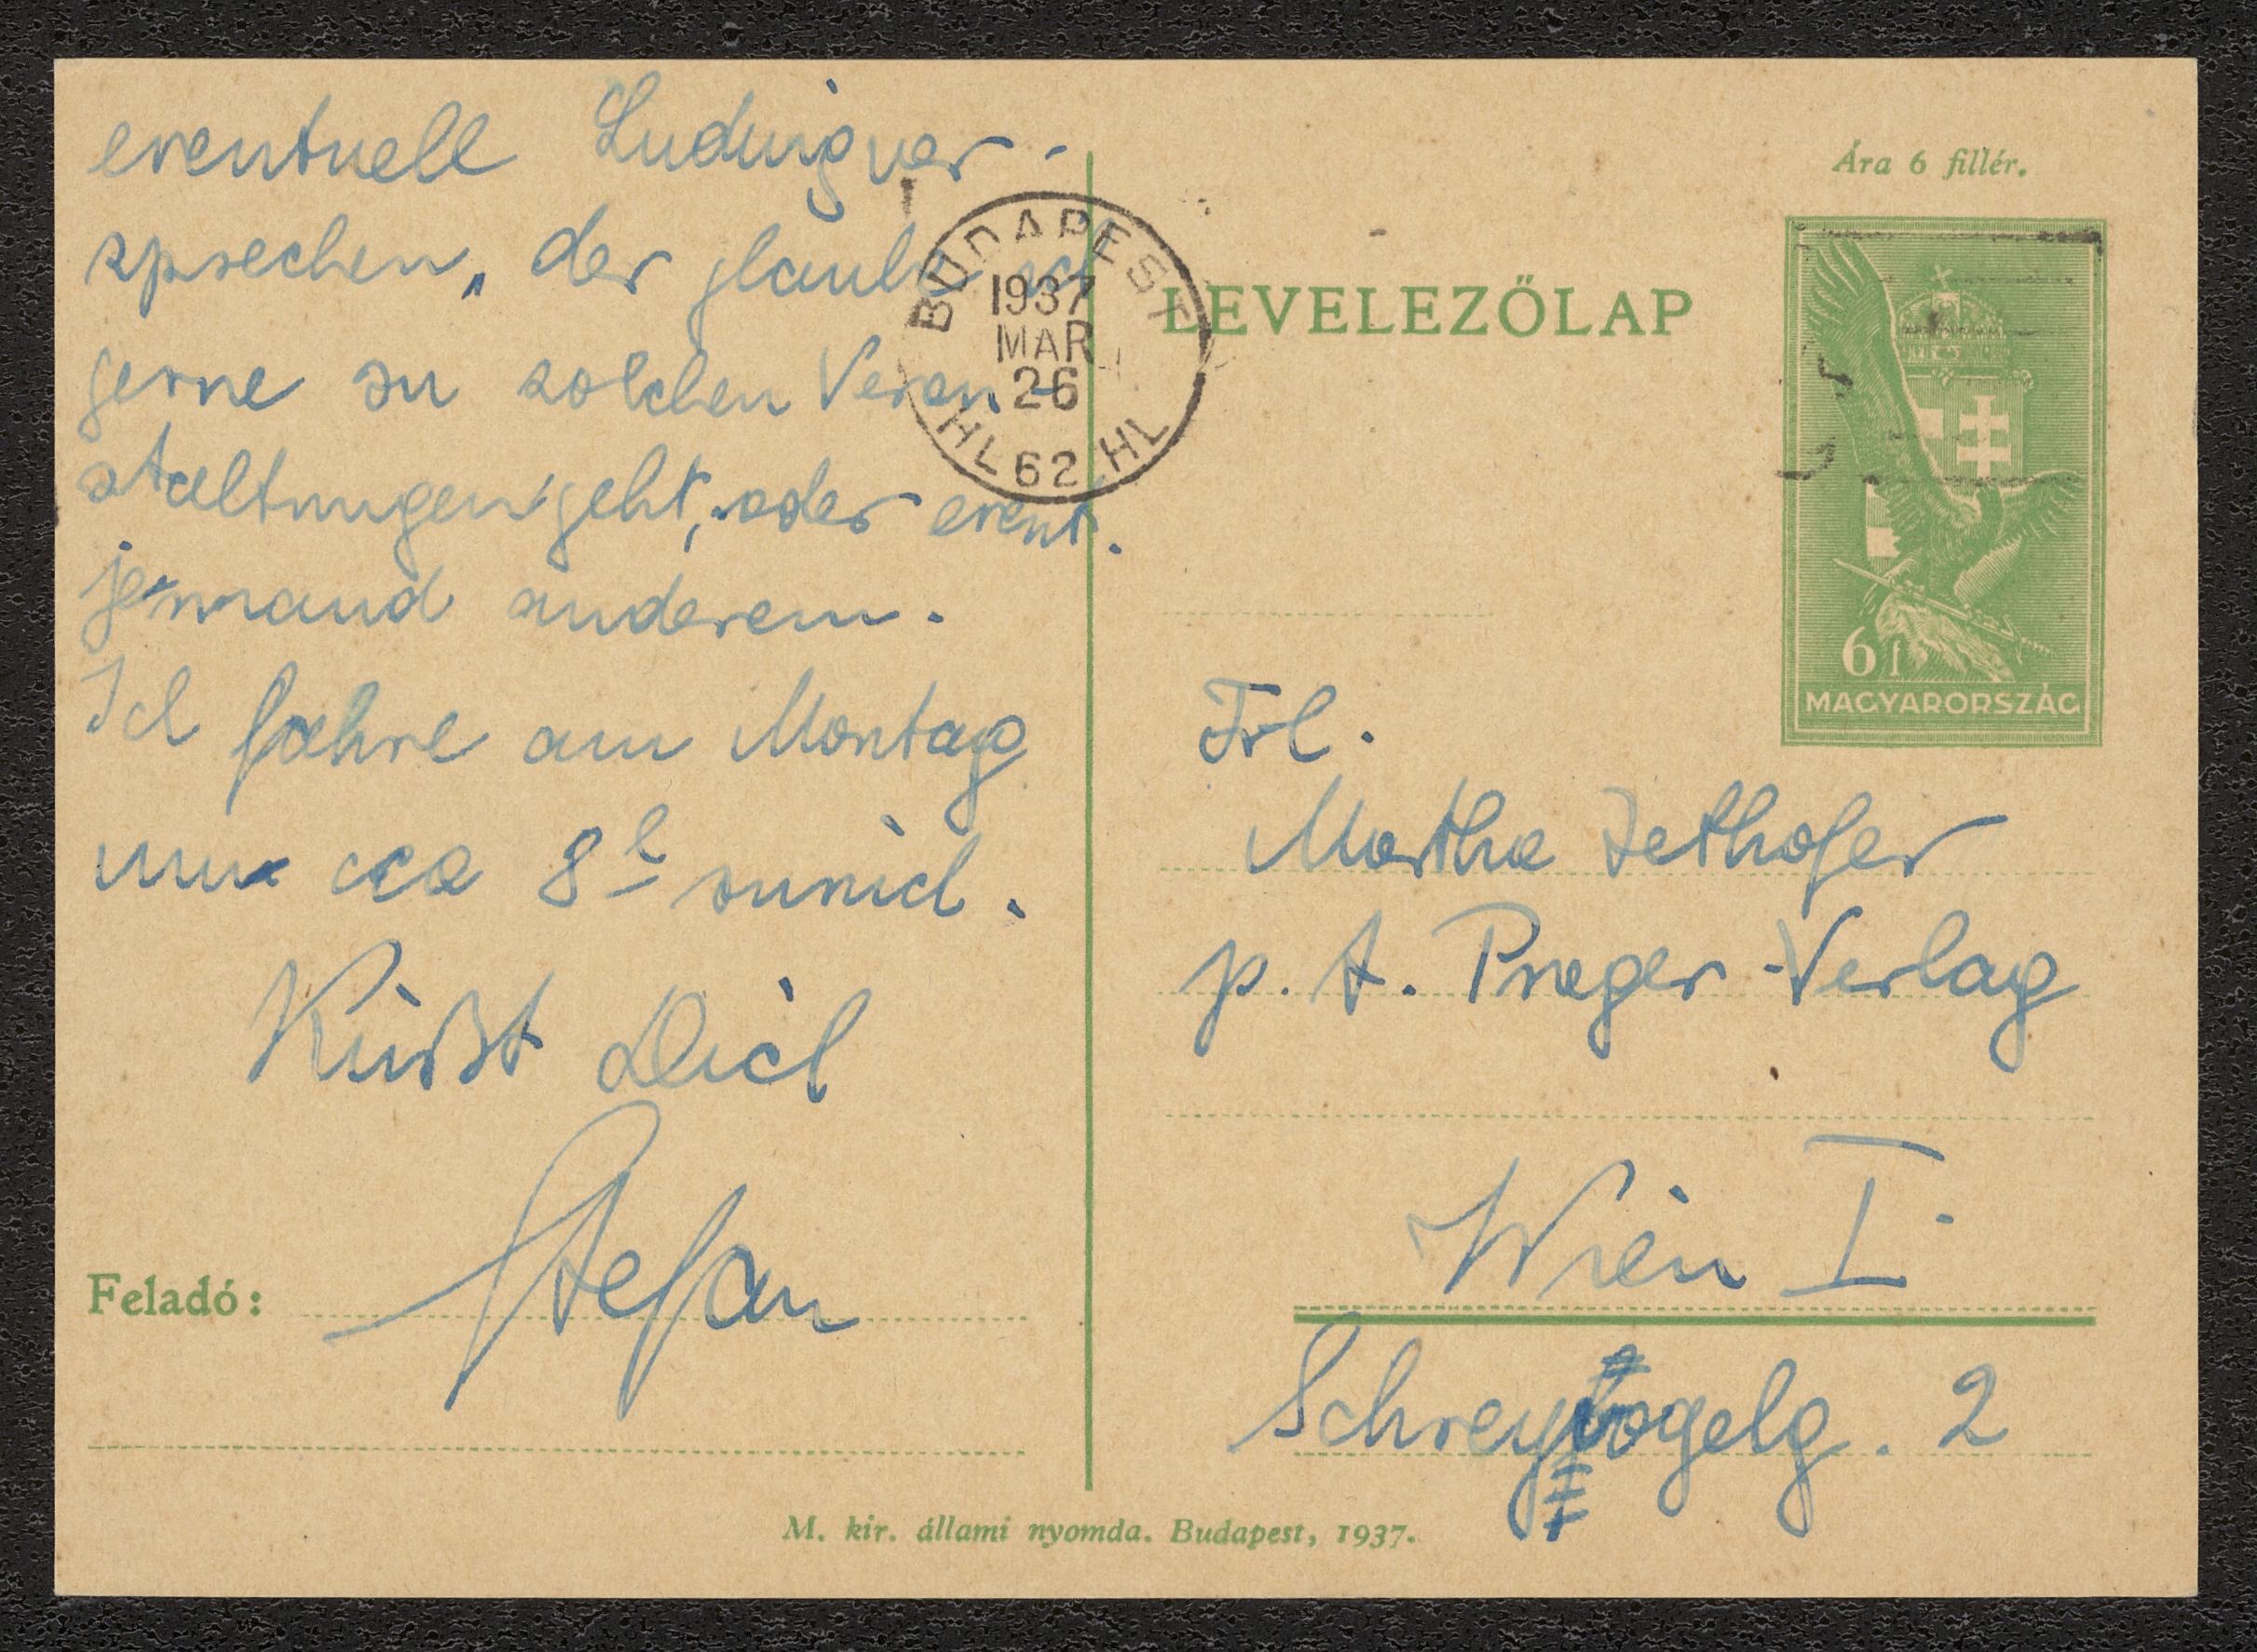 eventuell Ludwig ver-
sprechen, der glaube ich
gerne zu solchen Veran-
staltungen geht, oder event.
jemand anderem.
Ich fahre am Montag
um cca 8h zurück.
Küßt Dich
Stefan
Feladó:
BUDAPEST
1937
MAR
26
HL 62 HL
LEVELEZŐLAP
Ára 6 fillér.
6f
MAGYARORSZÁG
Frl.
Martha
p. A. Prager-Verlag
Wien I.
Schreyvogelg. 2
M. kir. állami nyomda. Budapest, 1937.